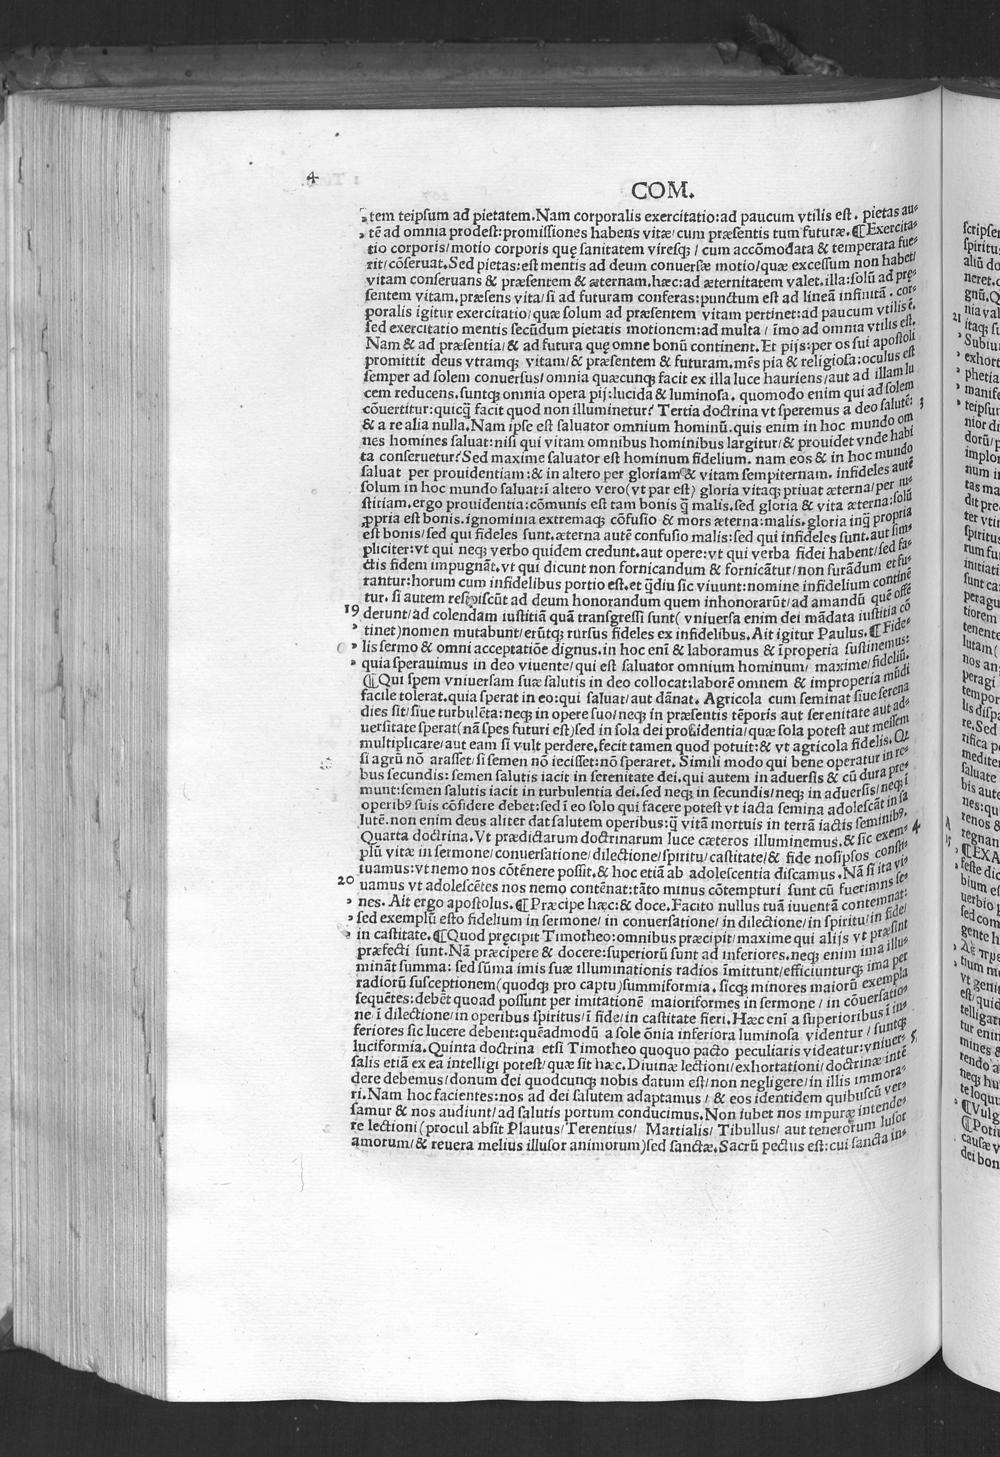 4
COM.
„tem teipsum ad pietatem.Nam corporalis exercitatio:ad paucum vtilis est. pietas au⸗
„tē ad omnia prodest:promissiones habens vitæ/cum præsentis tum futuræ.¶Exercita⸗
tio corporis/motio corporis quę sanitatem viresq; / cum accōmodata & temperata fue⸗
rit/cōseruat.Sed pietas:est mentis ad deum conuersæ motio/quæ excessum non habet/
vitam conseruans & præsentem & æternam.hæc:ad æternitatem valet.illa:solū ad prę⸗
sentem vitam.præsens vita/si ad futuram conferas:punctum est ad lineā infinitā. cor⸗
poralis igitur exercitatio/quæ solum ad præsentem vitam pertinet:ad paucum vtilis ē.
sed exercitatio mentis secūdum pietatis motionem:ad multa / īmo ad omnia vtilis est.
Nam & ad præsentia/& ad futura quę omne bonū continent.Et pijs:per os sui apostoli
promittit deus vtramq; vitam/& præsentem & futuram.mēs pia & religiosa:oculus est
semper ad solem conuersus/omnia quæcunq; facit ex illa luce hauriens/aut ad illam lu
cem reducens.suntq; omnia opera pij:lucida & luminosa. quomodo enim qui ad solem
cōuertitur:quicq̄ facit quod non illuminetur? Tertia doctrina vt speremus a deo salutē: 3
& a re alia nulla.Nam ipse est saluator omnium hominū.quis enim in hoc mundo om
nes homines saluat:nisi qui vitam omnibus hominibus largitur/& prouidet vnde habi
ta conseruetur?Sed maxime saluator est hominum fidelium. nam eos & in hoc mundo
saluat per prouidentiam:& in altero per gloriam & vitam sempiternam. infideles autē
solum in hoc mundo saluat:ī altero vero(vt par est) gloria vitaq; priuat æterna/per iu⸗
stitiam.ergo prouidentia:cōmunis est tam bonis q̄ malis.sed gloria & vita æterna:solū
ꝓpria est bonis.ignominia extremaq; cōfusio & mors æterna:malis.gloria inq̄ propria
est bonis/sed qui fideles sunt.æterna autē confusio malis:sed qui infideles sunt.aut sim⸗
pliciter:vt qui neq; verbo quidem credunt.aut opere:vt qui verba fidei habent/sed fa⸗
ctis fidem impugnāt.vt qui dicunt non fornicandum & fornicātur/non furādum et fu⸗
rantur:horum cum infidelibus portio est.et q̄diu sic viuunt:nomine infidelium continē
tur. si autem resipiscūt ad deum honorandum quem inhonorarūt/ad amandū quē offē
19 derunt/ad colendam iustitiā quā transgressi sunt( vniuersa enim dei mādata iustitia cō
„ tinet)nomen mutabunt/erūtq; rursus fideles ex infidelibus.Ait igitur Paulus.¶Fide⸗
„ lis sermo & omni acceptatiōe dignus.in hoc enī & laboramus & īproperia sustinemus:
„ quia sperauimus in deo viuente/qui est saluator omnium hominum/ maxime/fideliū.
¶Qui spem vniuersam suæ salutis in deo collocat:laborē omnem & improperia mūdi
facile tolerat.quia sperat in eo:qui saluat/aut dānat. Agricola cum seminat siue serena
dies sit/siue turbulēta:neq; in opere suo/neq; in præsentis tēporis aut serenitate aut ad⸗
uersitate sperat(nā spes futuri est)sed in sola dei prouidentia/quæ sola potest aut messem
multiplicare/aut eam si vult perdere.fecit tamen quod potuit:& vt agricola fidelis. Qz
si agrū nō arasset/si semen nō iecisset:nō speraret. Simili modo qui bene operatur in re⸗
bus secundis: semen salutis iacit in serenitate dei.qui autem in aduersis & cū dura pre⸗
munt:semen salutis iacit in turbulentia dei.sed neq; in secundis/neq; in aduersis/neq; ī
operibꝰ suis cōfidere debet:sed ī eo solo qui facere potest vt iacta semina adolescāt in sa
lutē.non enim deus aliter dat salutem operibus:q̄ vitā mortuis in terrā iactis seminibꝰ.
Quarta doctrina. Vt prædictarum doctrinarum luce cæteros illuminemus.& sic exem⸗ 4
plū vitæ in sermone/conuersatione/dilectione/spiritu/castitate/& fide nosipsos consti⸗
tuamus:vt nemo nos cōtēnere possit.& hoc etiā ab adolescentia discamus. Nā si ita vi⸗
20 uamus vt adolescētes nos nemo contēnat:tāto minus cōtempturi sunt cū fuerimus se⸗
„ nes. Ait ergo apostolus.¶Præcipe hæc:& doce.Facito nullus tuā iuuentā contemnat:
„ sed exemplū esto fidelium in sermone/in conuersatione/in dilectione/in spiritu/in fide/
„ in castitate.¶Quod pręcipit Timotheo:omnibus præcipit/maxime qui alijs vt præsint
præfecti sunt.Nā præcipere & docere:superiorū sunt ad inferiores.neq; enim ima illus⸗
mināt summa: sed sūma imis suæ illuminationis radios īmittunt/efficiunturq; ima per
radiorū susceptionem(quodq; pro captu)summiformia. sicq; minores maiorū exempla
sequētes:debēt quoad possunt per imitationē maioriformes in sermone / in cōuersatio⸗
ne/ī dilectione/in operibus spiritus/ī fide/in castitate fieri. Hæc enī a superioribus ī in⸗
feriores sic lucere debent:quēadmodū a sole ōnia inferiora luminosa videntur / suntq;
luciformia. Quinta doctrina etsi Timotheo quoquo pacto peculiaris videatur:vniuer⸗ 5
salis etiā ex ea intelligi potest/quæ sit hæc. Diuinæ lectioni/exhortationi/doctrinæ intē
dere debemus/donum dei quodcunq; nobis datum est/non negligere/in illis immora⸗
ri. Nam hoc facientes:nos ad dei salutem adaptamus / & eos identidem quibuscū ver⸗
samur & nos audiunt/ad salutis portum conducimus. Non iubet nos impuræ intende⸗
re lectioni(procul absit Plautus/Terentius/ Martialis/Tibullus/ aut tenerorum lusor
amorum/& reuera melius illusor animorum)sed sanctæ. Sacrū pectus est:cui sancta in⸗